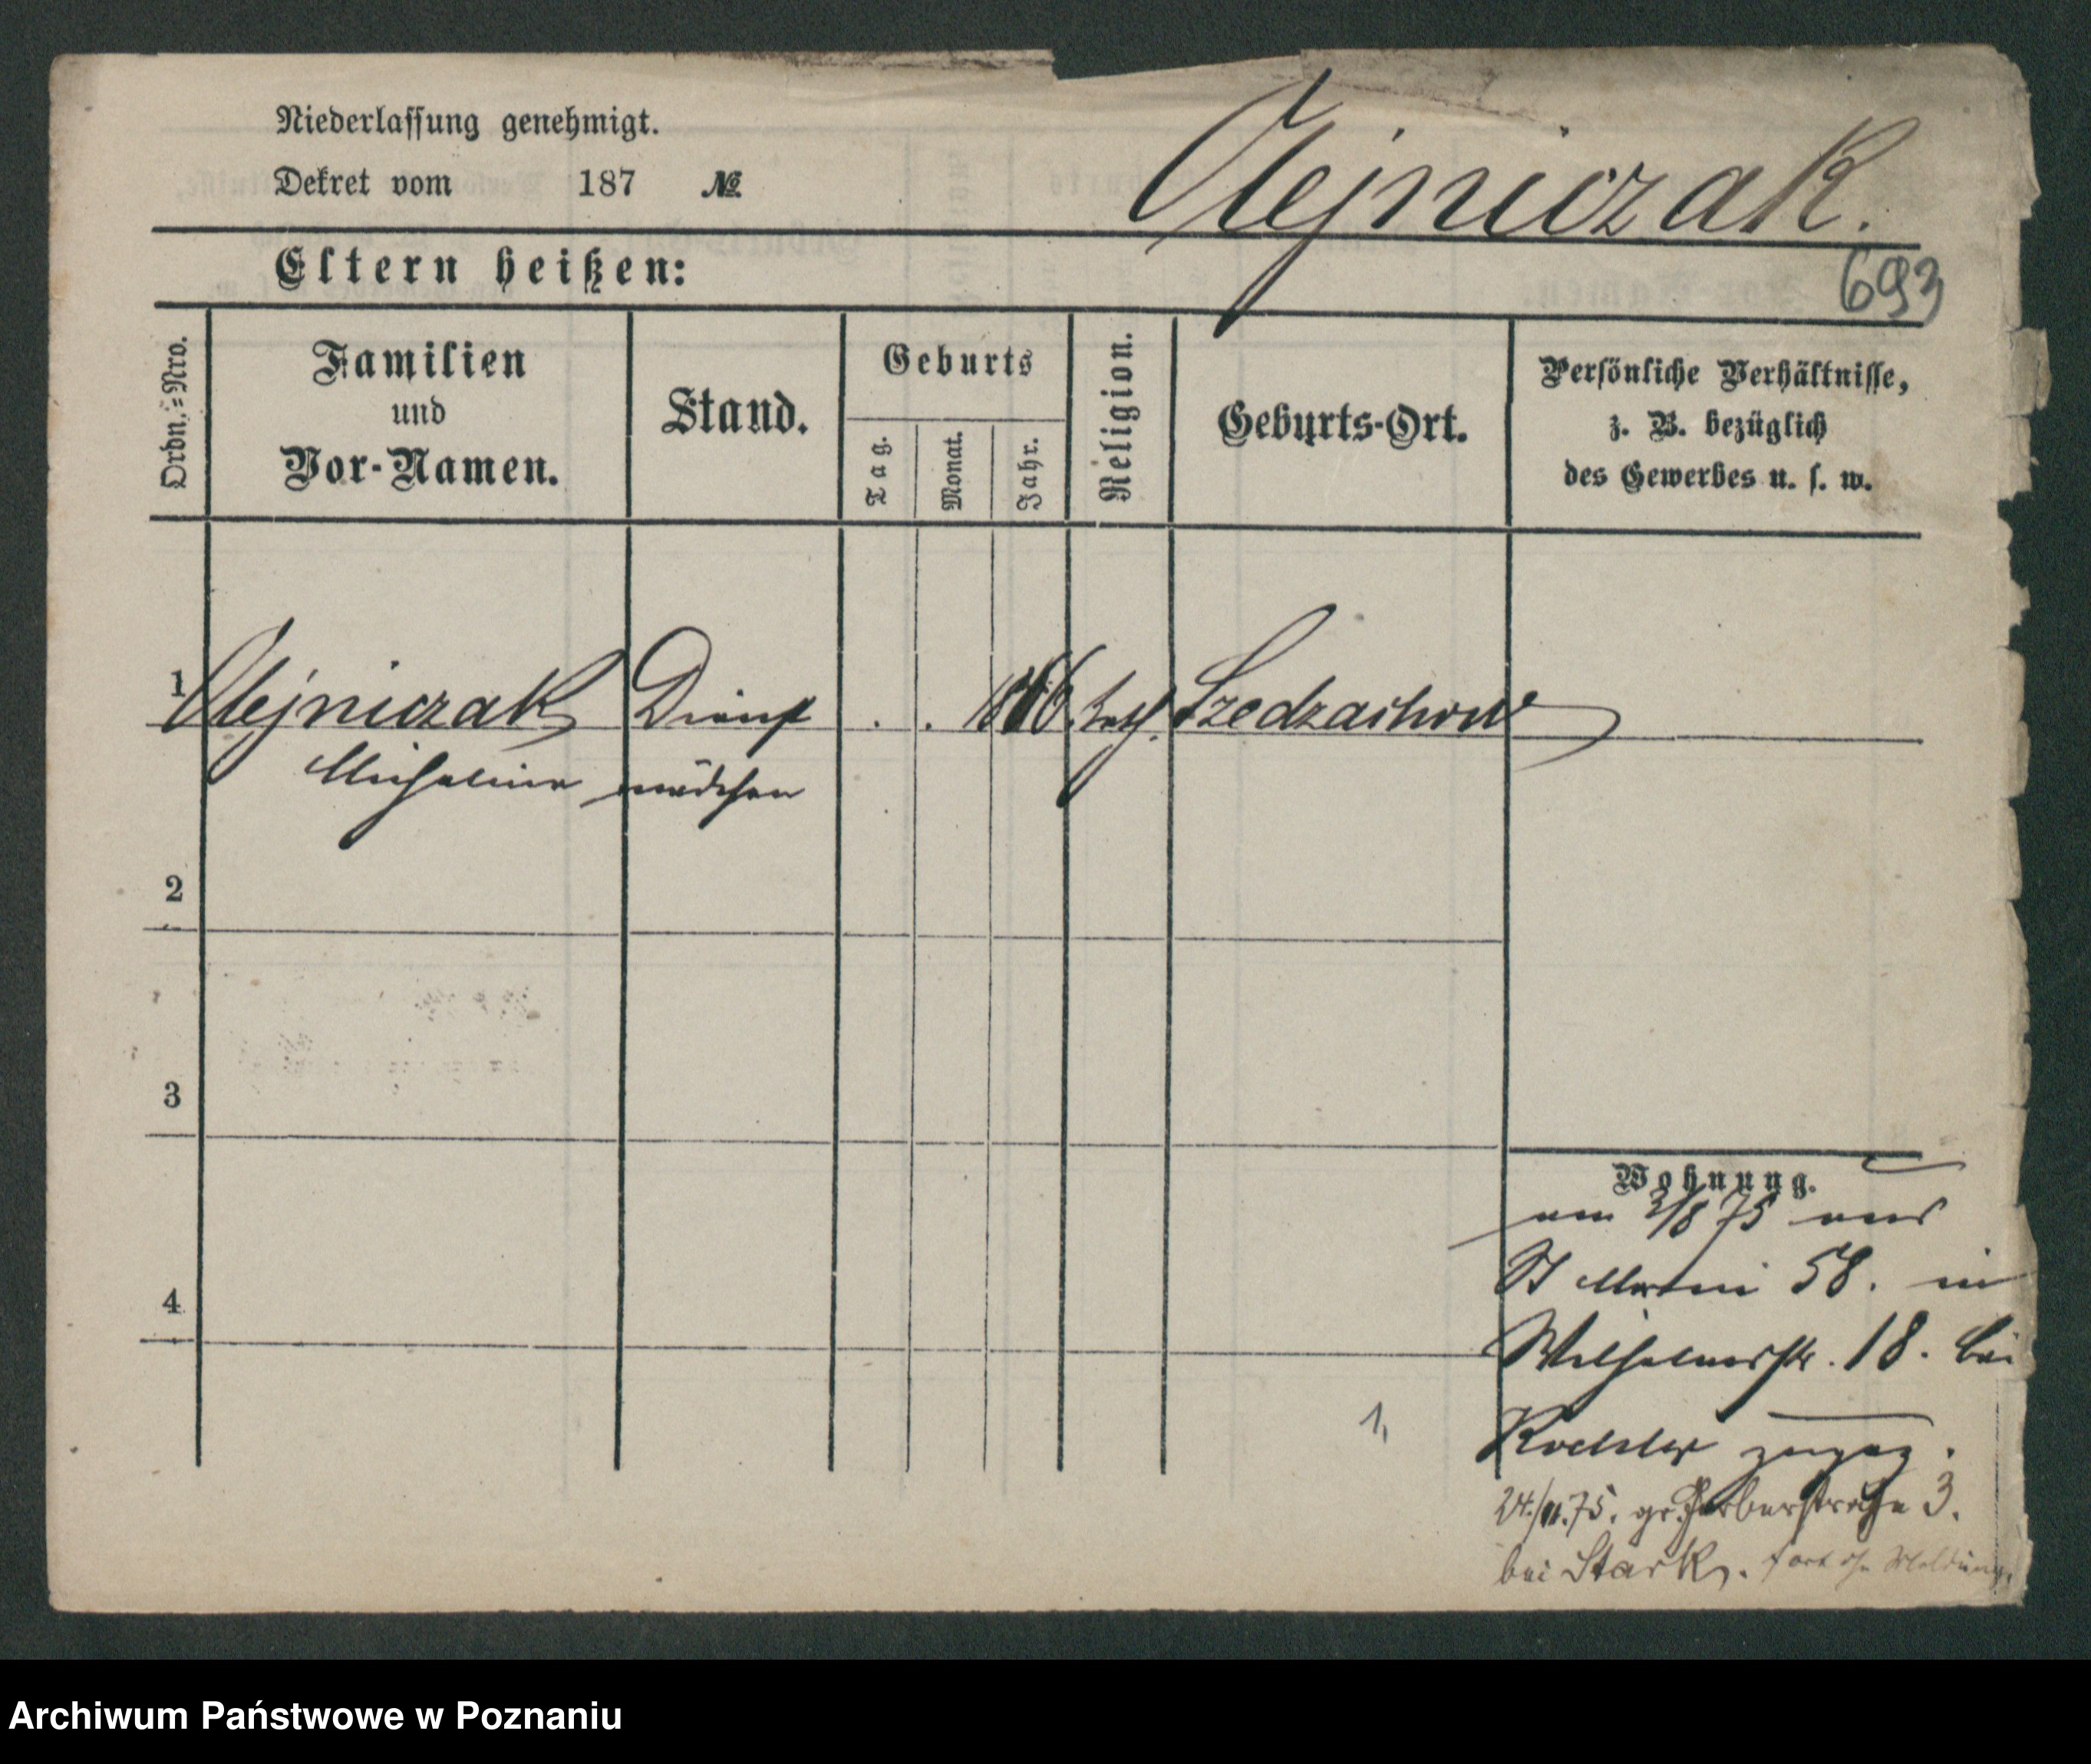 Niederlassung genehmigt.
Dekret vom 187 №
Olejniczak.
Eltern heißen:
693
Ordn.-Nro.
Familien
und
Vor-Namen.
Stand.
Geburts
Tag.
Monat.
Jahr.
Religion.
Geburts-Ort.
Persönliche Verhältnisse,
z. B. bezüglich
des Gewerbes u. s. w.
1 Olejniczak Dienst . . kath. Szedzachow
Michalina mädchen
2
3
4
Wohnung.
am 2/8 75 aus
St Martin 58. in
Wilhelmsstr. 18. bei
zugez.
1,
24./11.75. gr. Gerberstraße 3.
bei Stark. fort oh Meldung.
Archiwum Państwowe w Poznaniu